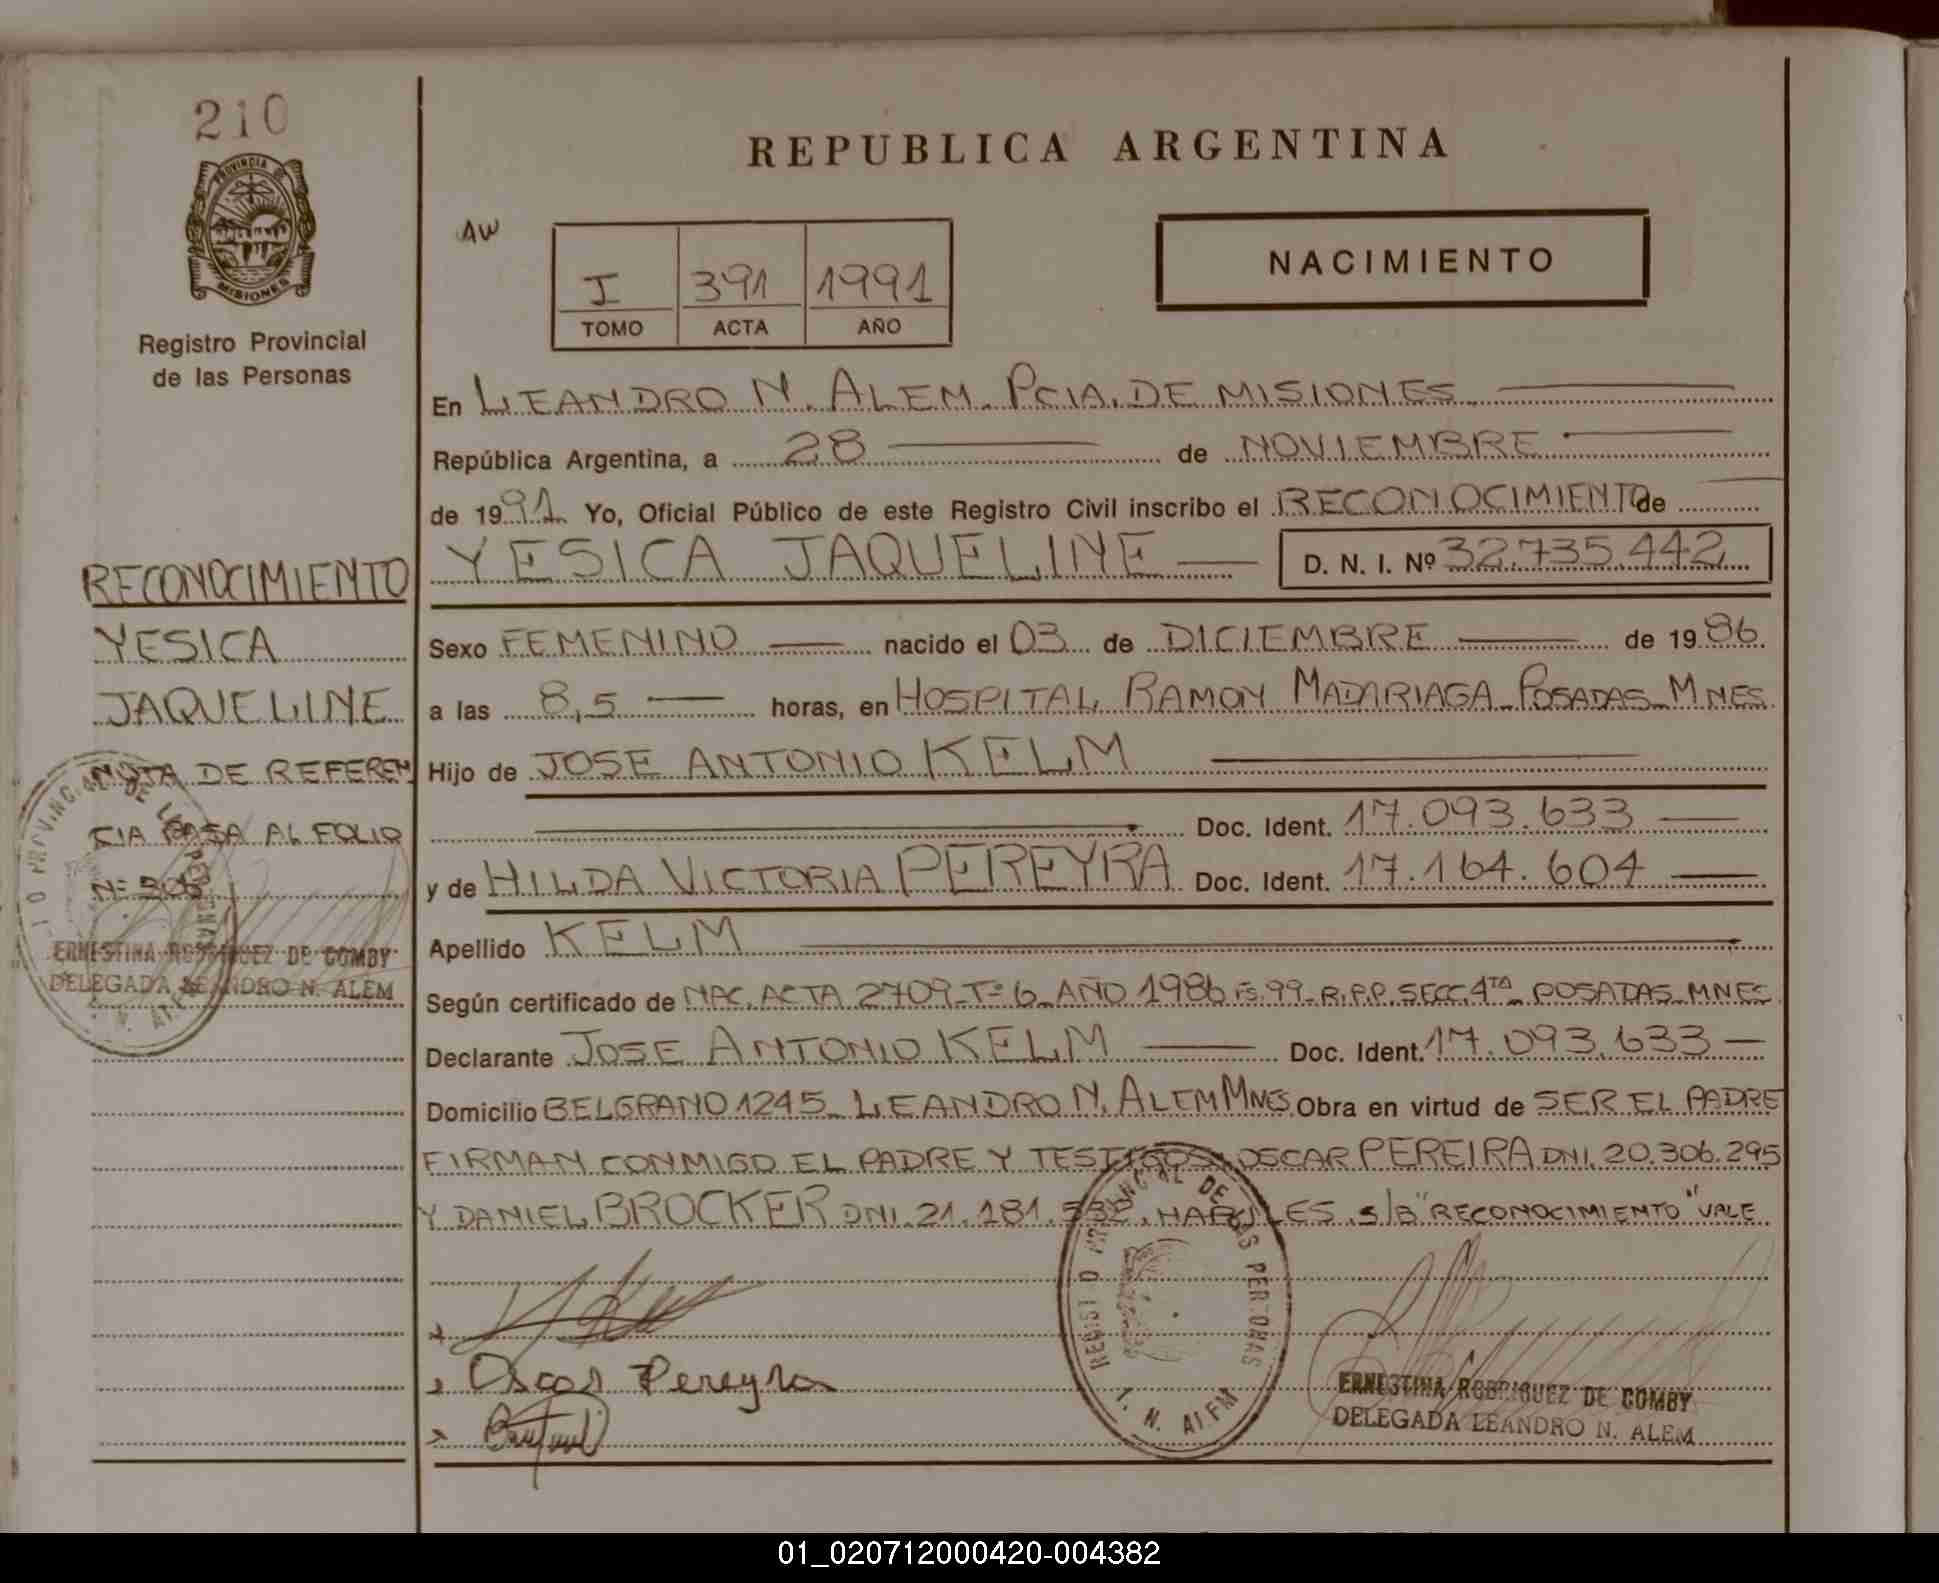 210
PROVINCIA DE
MISIONES
Registro Provincial
de las Personas
RECONOCIMIENTO
YESICA
JAQUELINE
NOTA DE REFEREN
CIA PASA AL FOLIO
Nº
ERNESTINA RODRIGUEZ DE COMBY
DELEGADA LEANDRO N. ALEM
REPUBLICA ARGENTINA
AW
I 391 1991
TOMO ACTA AÑO
NACIMIENTO
En LEANDRO N. ALEM. PCIA. DE MISIONES
República Argentina, a 28 de NOVIEMBRE
de 1991 Yo, Oficial Público de este Registro Civil inscribo el RECONOCIMIENTO de
YESICA JAQUELINE D. N. I. Nº 32.735.442
Sexo FEMENINO nacido el 03 de DICIEMBRE de 1986
a las 8,5 horas, en HOSPITAL RAMON MADARIAGA - POSADAS - MNES.
Hijo de JOSE ANTONIO KELM
Doc. Ident. 17.093.633
y de HILDA VICTORIA PEREYRA Doc. Ident. 17.164.604
Apellido KELM
Según certificado de NAC. ACTA 2709 - Tº 6 - AÑO 1986 Fº 99 - R.P.P. SECC. 4TA - POSADAS - MNES
Declarante JOSE ANTONIO KELM Doc. Ident. 17.093.633
Domicilio BELGRANO 1245 - LEANDRO N. ALEM MNES Obra en virtud de SER EL PADRE
FIRMAN CONMIGO EL PADRE Y TESTIGOS, OSCAR PEREIRA DNI. 20.306.295
Y DANIEL BROCKER DNI. 21.181.532, HABILES. s/B "RECONOCIMIENTO" VALE
Oscar Pereyra
REGISTRO PROVINCIAL DE LAS PERSONAS
L. N. ALEM
ERNESTINA RODRIGUEZ DE COMBY
DELEGADA LEANDRO N. ALEM
01_020712000420-004382